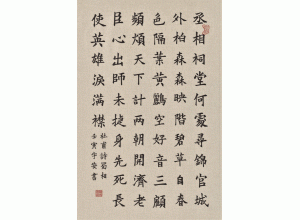 丞相祠堂何處尋錦官城
外柏森森映階碧草自春
色隔葉黃鸝空好音三顧
頻煩天下計兩朝開濟老
臣心出師未捷身先死長
使英雄淚滿襟
杜甫詩蜀相